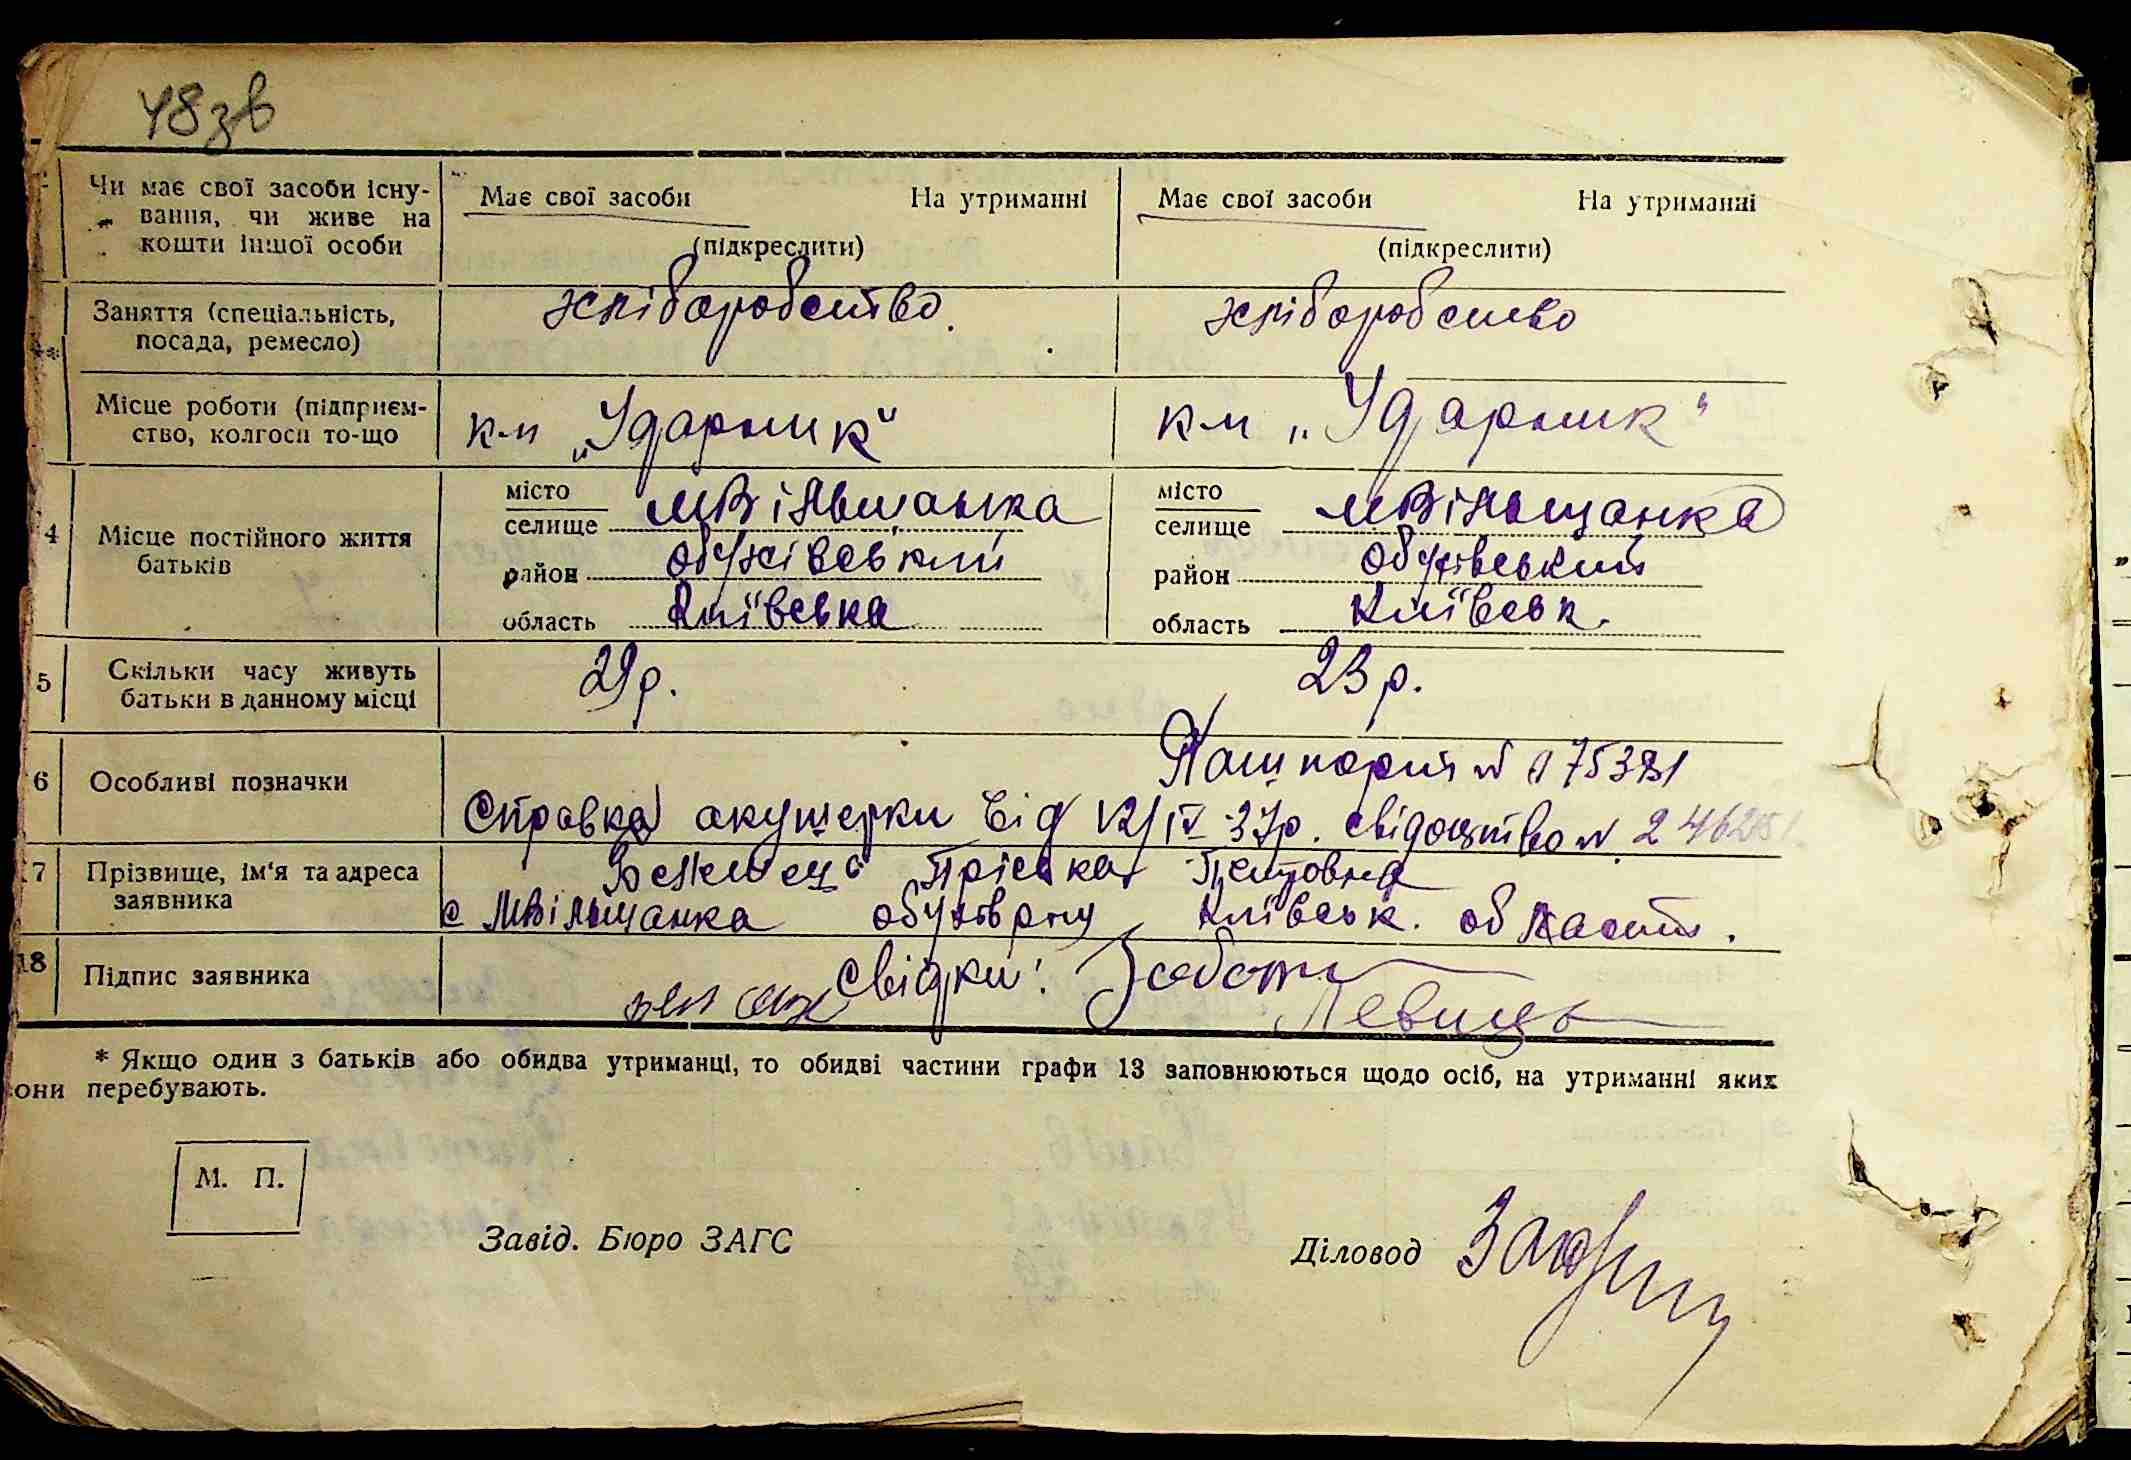 48зв
Чи має свої засоби існу-
вання, чи живе на
кошти іншої особи
Має свої засоби На утриманні
(підкреслити)
Має свої засоби На утриманні
(підкреслити)
Заняття (спеціальність,
посада, ремесло)
хліборобство
хліборобство
Місце роботи (підприєм-
ство, колгосп то-що
к-п „Ударник“
к-п „Ударник“
4
Місце постійного життя
батьків
місто
селище мВільшанка
район обухівський
область Київська
місто
селище мВільшанка
район обухівський
область Київськ.
5
Скільки часу живуть
батьки в данному місці
29р.
23р.
6
Особливі позначки
Пашпорт №
Справка акушерки від 12/IV-37р. свідоцтво №
7
Прізвище, ім'я та адреса
заявника
Пріська Петровна
с МВільшанка обухів рну Київськ. области.
18
Підпис заявника
свідки:
* Якщо один з батьків або обидва утриманці, то обидві частини графи 13 заповнюються щодо осіб, на утриманні яких
они перебувають.
М. П.
Завід. Бюро ЗАГС
Діловод